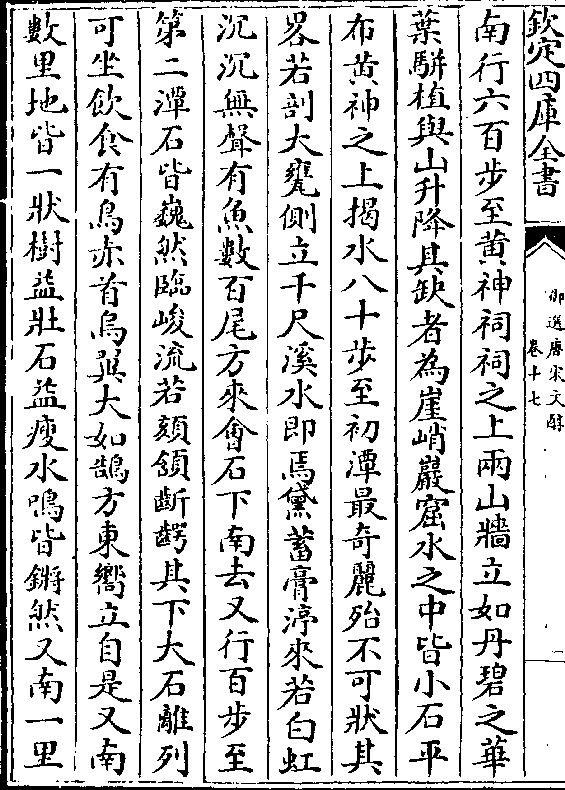 欽定四庫全書
御選唐宋文醇
卷十七
南行六百步至黄神祠祠之上兩山牆立如丹碧之華
葉駢植與山升降其缺者為崖峭巖窟水之中皆小石平
布黄神之上揭水八十步至初潭最奇麗殆不可狀其
畧若剖大甕側立千尺溪水即焉黛蓄膏渟來若白虹
沉沉無聲有魚數百尾方來會石下南去又行百步至
第二潭石皆巍然臨峻流若頦頷齗齶其下大石離列
可坐飲食有鳥赤首烏翼大如鵠方東嚮立自是又南
數里地皆一狀樹益壯石益瘦水鳴皆鏘然又南一里